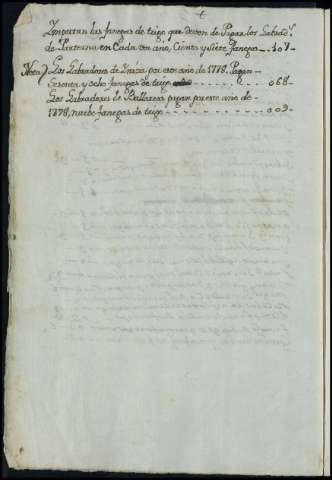 Ymportan las fanegas de trigo que deven de Pagar los Labrad.s
de Pastrana en Cada un año, Ciento y siete fanegas - 107 -
Nota) Los Labradores de por este año de 1778. Pagan
sesenta y ocho fanegas de trigo - - - - 068 -
Los Labradores de pagan por este año de -
1778, nuebe fanegas de trigo - - - - - - - - - 009 -